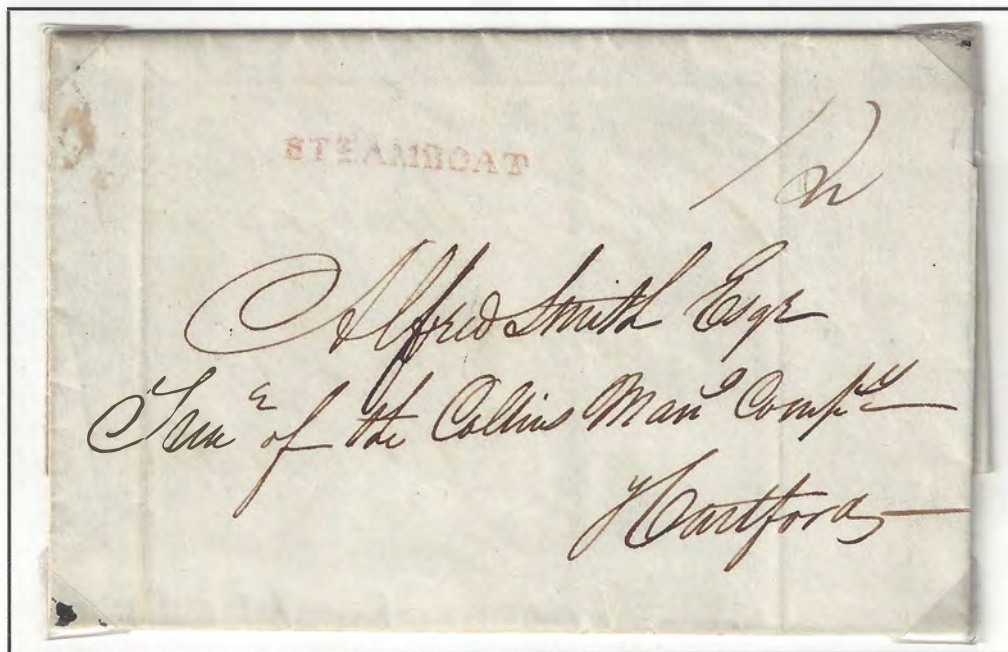 STEAMBOAT
12
Alfred Smith Esqr
of the Collins Manu Compy
Hartford